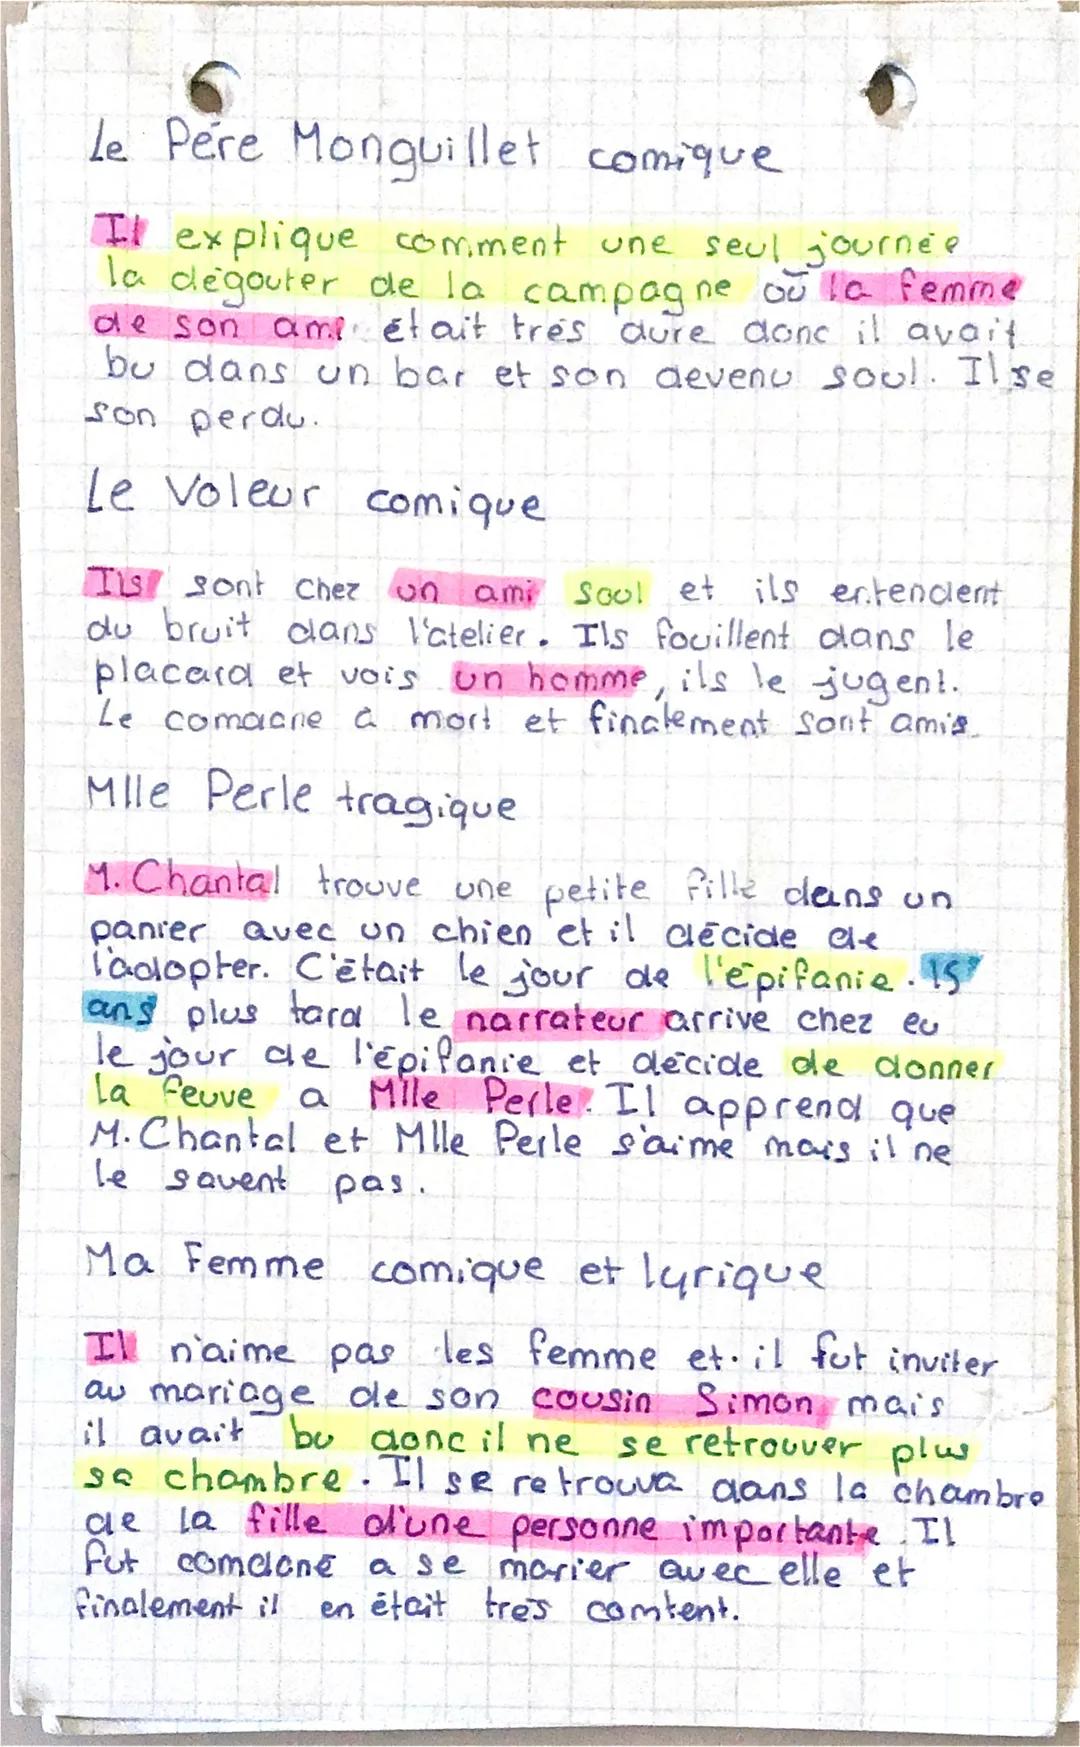 Le Père Monguillet comique
Il explique comment une seul journée
la dégouter de la campagne où la femme
de son ami était très dure donc il avait
bu dans un bar et son devenu soul. Il se
son perdu.
Le Voleur comique
Ils sont chez un ami soul et ils entendent
du bruit dans l'atelier. Ils fouillent dans le
placard et vois un homme, ils le jugent.
Le comdane à mort et finalement sont amis
Mlle Perle tragique
M. Chantal trouve une petite fille dans un
panier avec un chien et il décide de
l'adopter. C'était le jour de l'épifanie. 15
ans plus tard le narrateur arrive chez eu
le jour de l'épifanie et décide de donner
la feuve a Mlle Perle. Il apprend que
M. Chantal et Mlle Perle s'aime mais il ne
le savent pas.
Ma Femme comique et lyrique
Il n'aime pas les femme et il fut inviter
au mariage de son cousin Simon mais
il avait bu donc il ne se retrouver plus
sa chambre. Il se retrouva dans la chambre
de la fille d'une personne importante. Il
fut comdané a se marier avec elle et
finalement il en était très comtent.